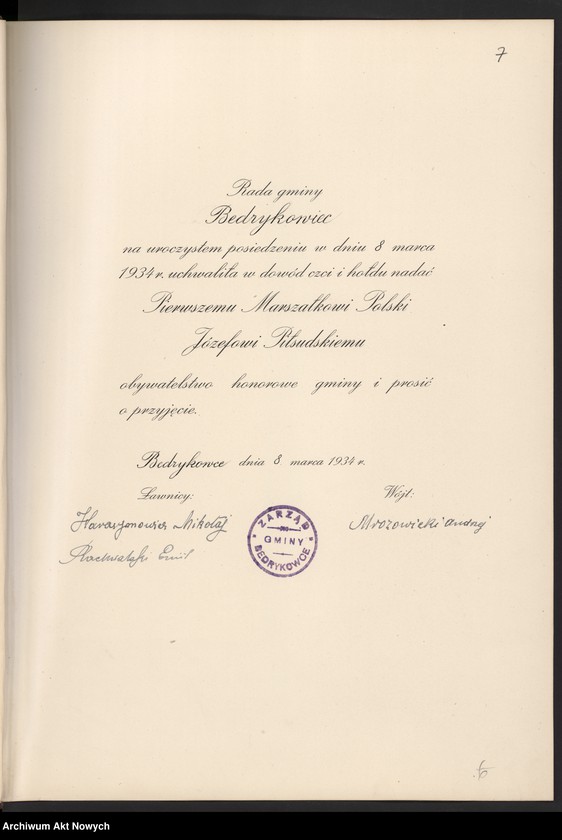 7
Rada gminy
Bedrykowiec
na uroczystem posiedzeniu w dniu 8 marca
1934 r. uchwaliła w dowód czci i hołdu nadać
Pierwszemu Marszałkowi Polski
Józefowi Piłsudskiemu
obywatelstwo honorowe gminy i prosić
o przyjęcie.
Bedrykowce dnia 8. marca 1934 r.
Ławnicy: Wójt:
Mikołaj Mrozowicki Andrzej
Emil
ZARZĄD
GMINY
BEDRYKOWCE
Archiwum Akt Nowych